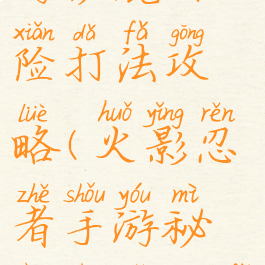 xiǎn dǎ fǎ gōng
险打法攻
lüè huǒ yǐng rěn
略(火影忍
zhě shǒu yóu mì
者手游秘